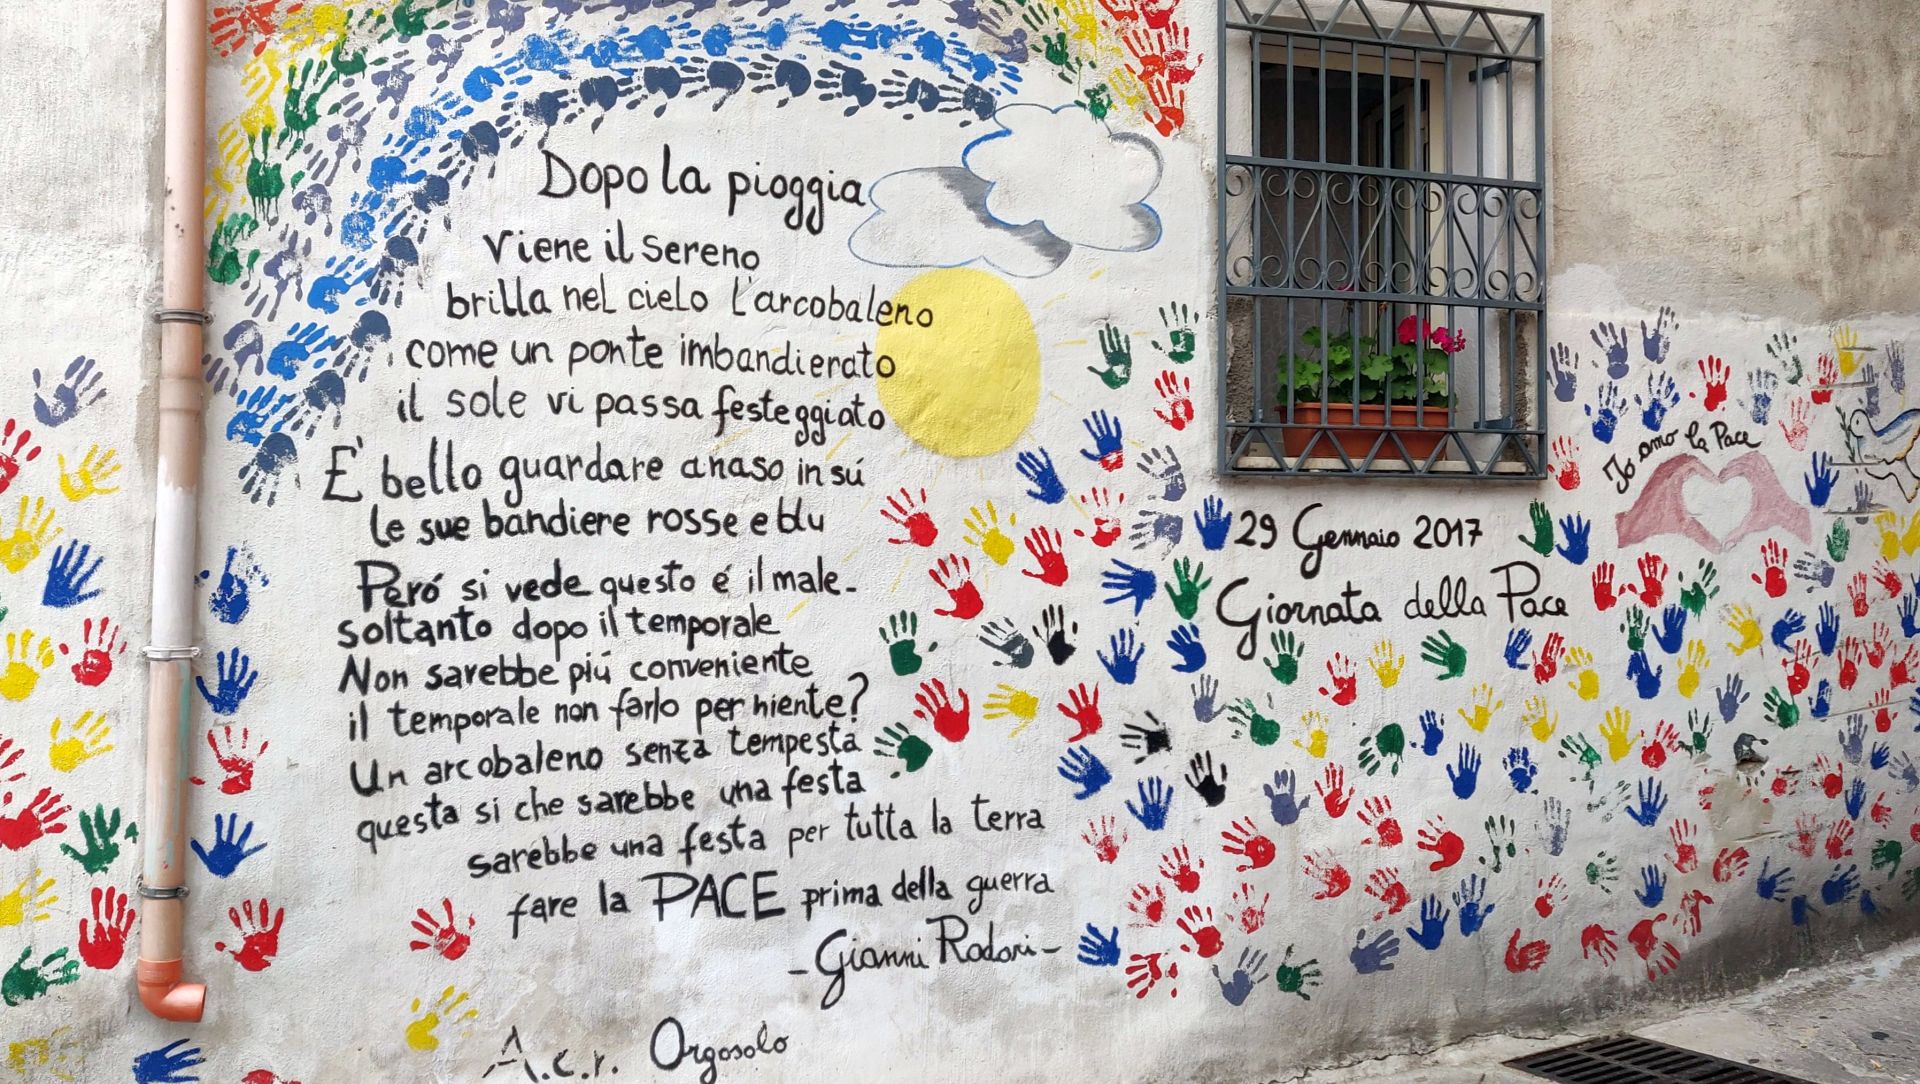 Dopo la pioggia
viene il sereno
brilla nel cielo l'arcobaleno
come un ponte imbandierato
il sole vi passa festeggiato
E' bello guardare a naso in sú
le sue bandiere rosse e blu
Peró si vede questo é il male-
soltanto dopo il temporale
Non sarebbe piú conveniente
il temporale non farlo per niente?
Un arcobaleno senza tempesta
questa si che sarebbe una festa
sarebbe una festa per tutta la terra
fare la PACE prima della guerra
- Gianni Rodari -
A.c.r. Orgosolo
29 Gennaio 2017
Giornata della Pace
Io amo la Pace